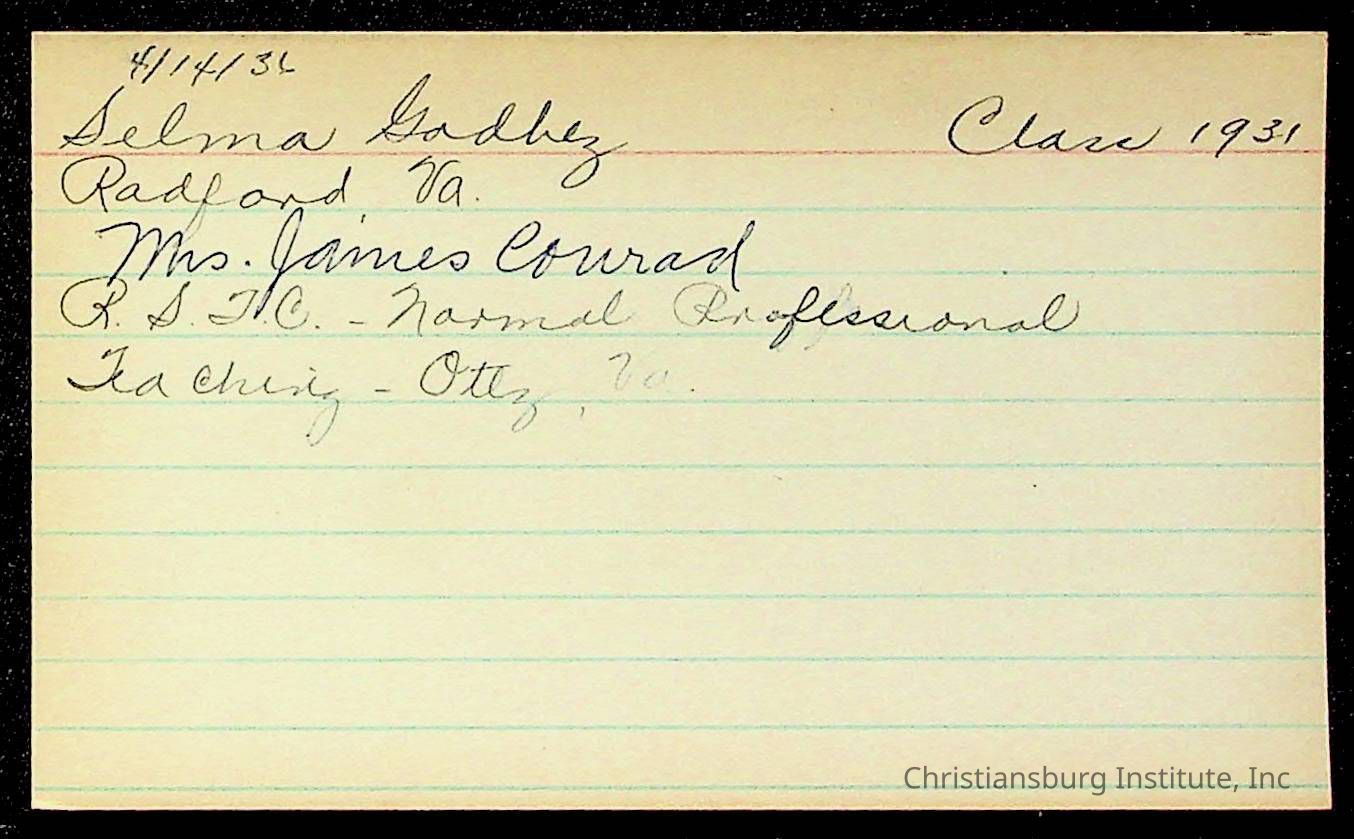 4/14/36
Selma Godbey Class 1931
Radford Va.
Mrs. James Conrad
R. S. T. C. - Normal Professional
Teaching - Otey, Va.
Christiansburg Institute, Inc